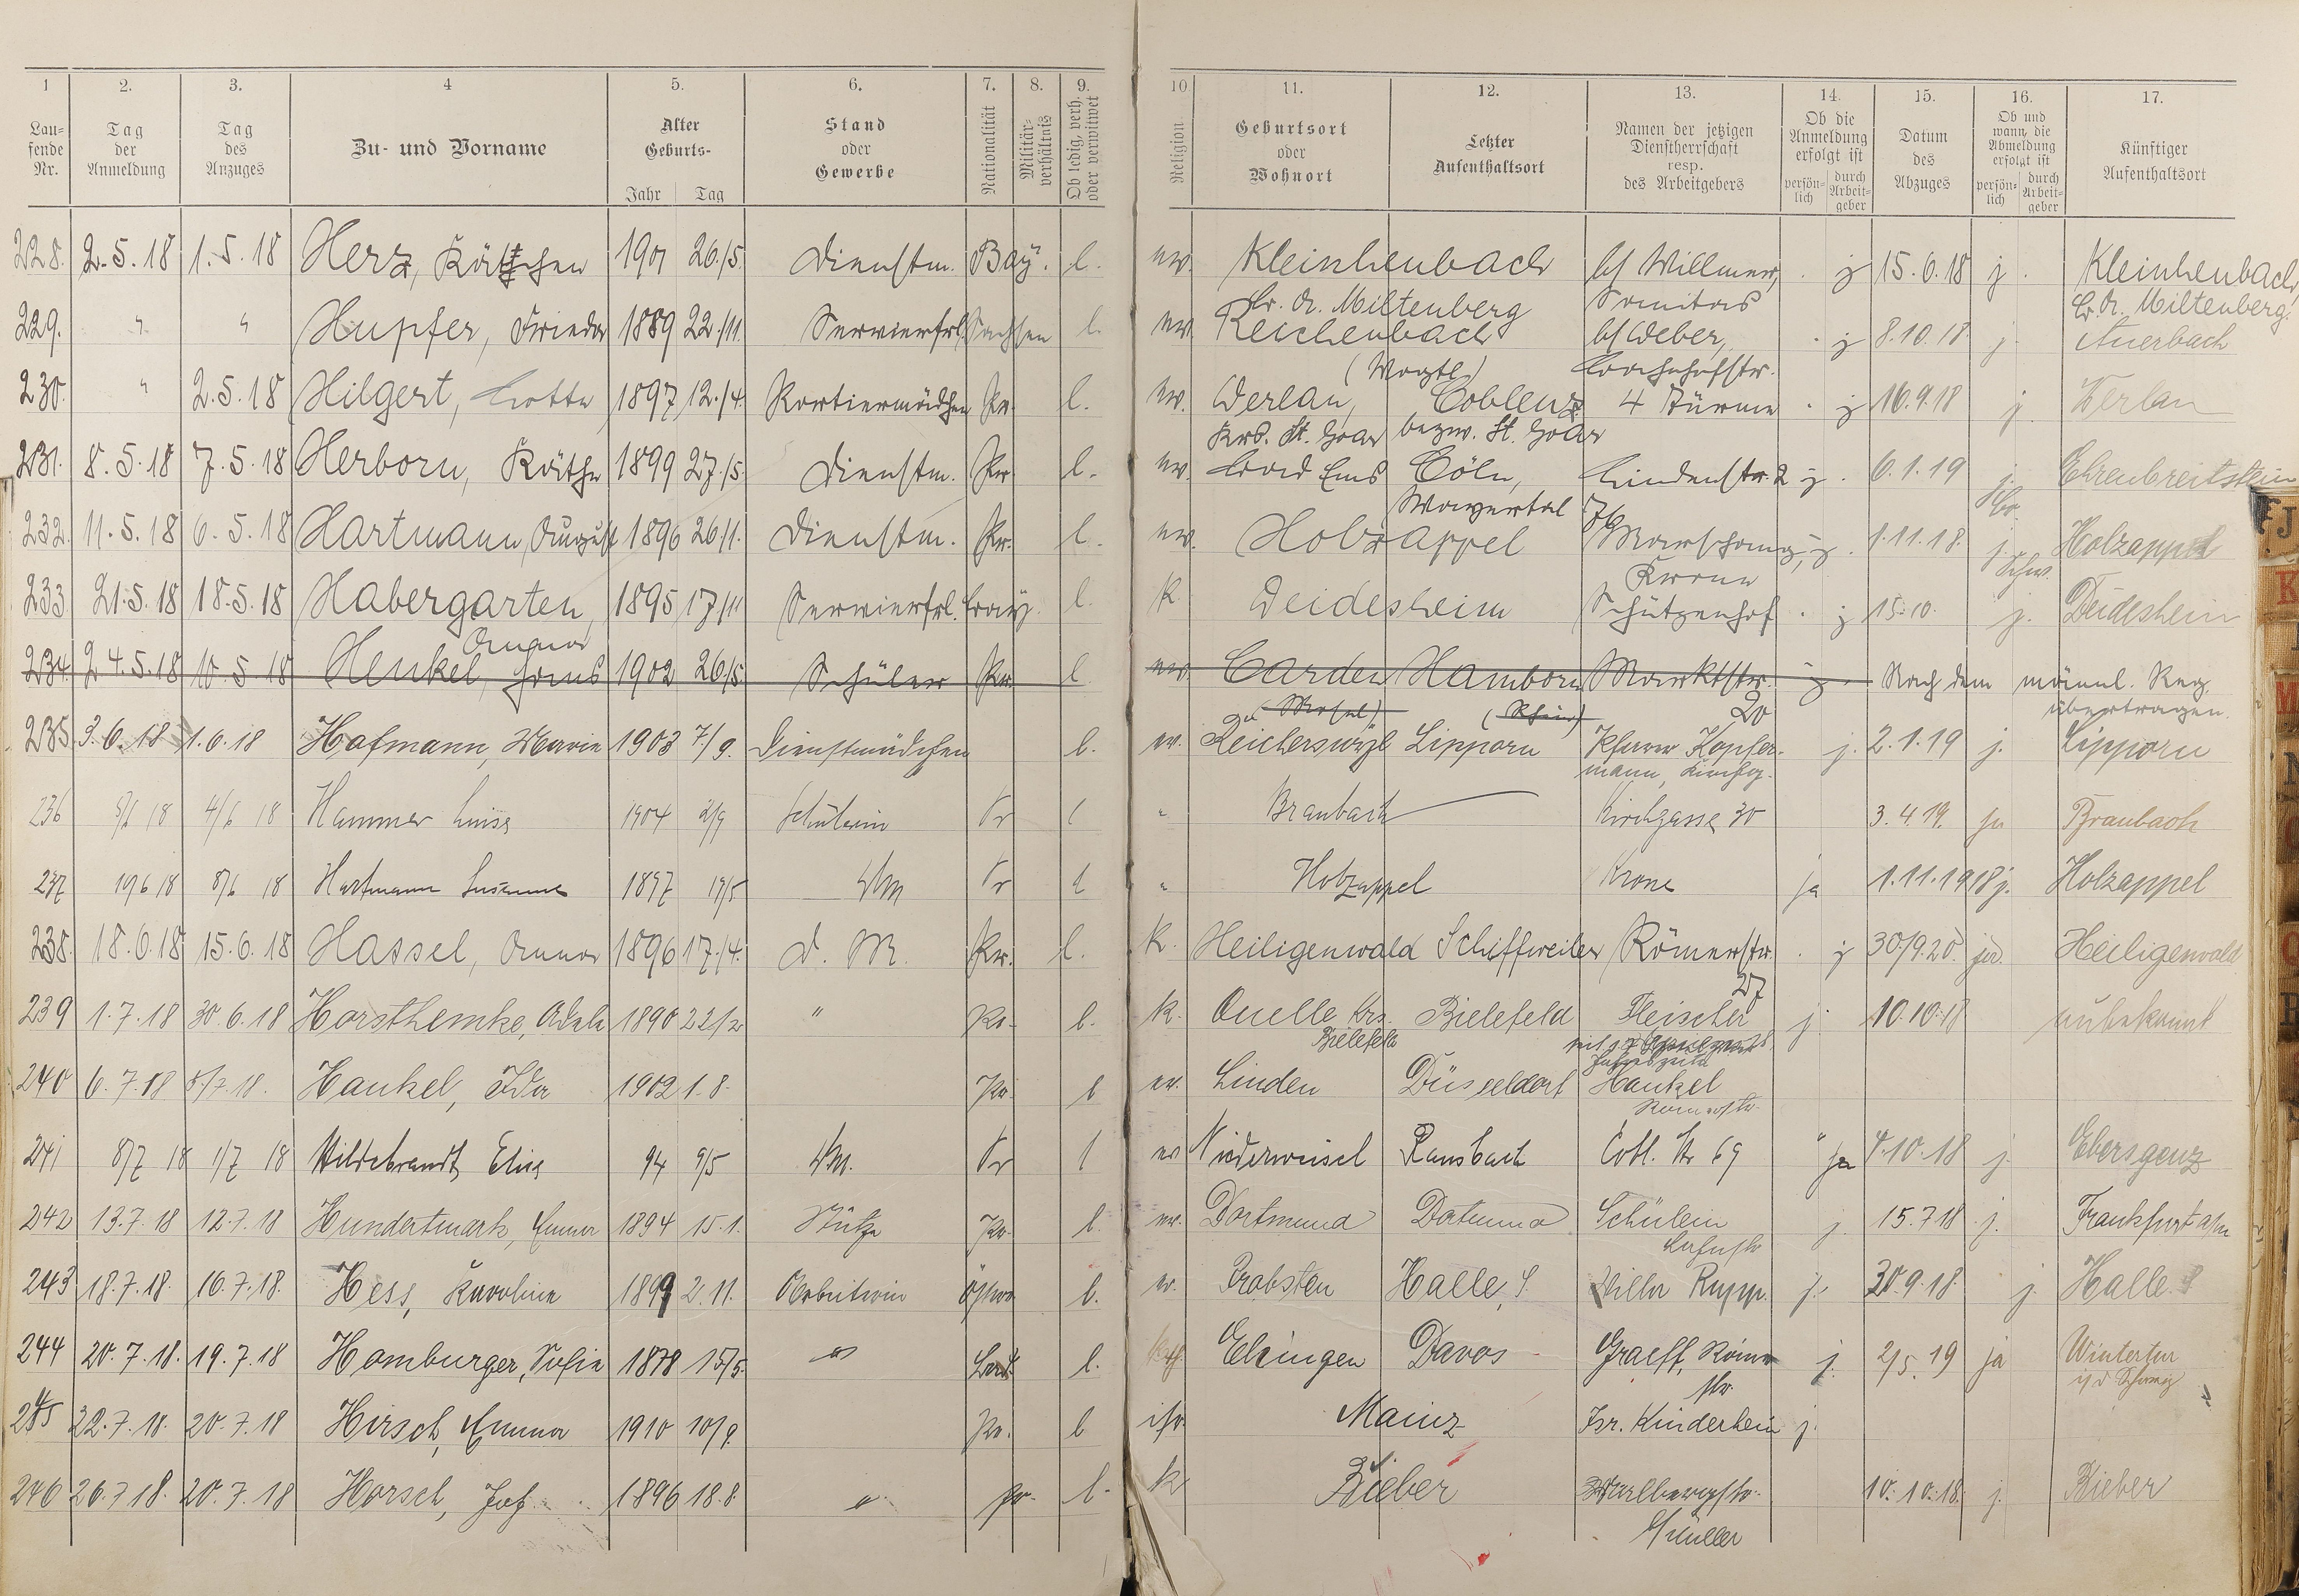 1 2. 3. 4 5. 6. 7. 8. 9. 10. 11. 12. 13. 14. 15. 16. 17.
Lau- fende Nr. Tag der Anmeldung Tag des Anzuges Zu- und Vorname Alter Geburts- Jahr Tag Stand oder Gewerbe Nationalität Militär- verhältnis Ob ledig, verh. oder verwitwet Religion Geburtsort oder Wohnort Letzter Aufenthaltsort Namen der jetzigen Dienstherrschaft resp. des Arbeitgebers Ob die Anmeldung erfolgt ist persön- lich durch Arbeit- geber Datum des Abzuges Ob und wann die Abmeldung erfolgt ist persön- lich durch Arbeit- geber Künftiger Aufenthaltsort
228. 2.5.18 1.5.18 Herz, Käthchen 1901 26./5. Dienstm. Bay. l. ev. Kleinheubach b/ Willmer, . j 15.6.18 j. Kleinheubach,
Kr. A. Miltenberg Sanitas Kr. A. Miltenberg.
229. " " Hupfer, Frieda 1889 22./11. Servierfrl. Sachsen l. ev. Reichenbach b/ Weber, . j 8.10.18 j. Auerbach
(Vogtl.) Bahnhofstr.
230. " 2.5.18 Hilgert, Lotte 1897 12./4. Portiermädchen Pr. l. ev. Werlau, Coblenz 4 Türme . j 16.9.18 j Werlau
Krs. St. Goar bezw. St. Goar
231. 8.5.18 7.5.18 Herborn, Käthe 1899 27./5. Dienstm. Pr l. ev. Bad Ems Cöln, Lindenstr. 2 j . 6.1.19 j. Ehrenbreitstein
232. 11.5.18 6.5.18 Hartmann, August 1896 26./1. Dienstm. Pr. l. ev. Holzappel j . 1.11.18. j. Holzappel
Krone
233 21.5.18 18.5.18 Habergarten, 1895 17./11 Servierfrl. Bay. l. k. Deidesheim Schützenhof . j 15.10. j. Deidesheim
Anna
234. 24.5.18 10.5.18 Henkel, Hans 1902 26./5. Schüler Pr. l. ev. Carden Hamborn Marktstr. j. Nach dem männl. Reg.
(Mosel) (Rhein) 20 übertragen.
235 3.6.18 1.6.18 Hofmann, Marie 1903 7/9. Dienstmädchen l. ev. Lipporn Pfarrer Kopfer- j. 2.1.19 j. Lipporn
mann, Kirchg.
236 5/6 18 4/6 18 Hammer Luise 1904 2/9 Schülerin Pr l " Braubach Kirchgasse 30 3.4.19. ja Braubach
237 19 6 18 8/6 18 Hartmann Susanne 1897 19/5 Pr l " Holzappel Krone ja 1.11.1918 j. Holzappel
238. 18.6.18 15.6.18 Hassel, Anna 1896 17./4. D. M. Pr. l. k. Heiligenwald Schiffweiler Römerstr. . j 30/9.20. ja Heiligenwald
27
239 1.7.18 30.6.18 Horsthemke, Adele 1890 22/2 " Pr. l. k. Quelle Krs. Bielefeld Fleischer j. 10.10.18 unbekannt
Bielefeld
240 6.7.18 5/7.18. Hankel, Ida 1902 1.8. Pr. l ev. Linden Düsseldorf Hankel
Römerstr.
241 8/7 18 1/7 18 Hildebrandt, Elise 94 9/5 Pr l ev Niederweisel Ransbach Cobl. Str 69 ja 4.10.18 j.
242 13.7.18 12.7.18 Hundertmark, Emma 1894 15.1. Stütze Pr. l. ev. Dortmund Schülein j. 15.7 18 j. Frankfurt a/m
243 18.7.18. 16.7.18. Hess, Karoline 1899 2.11. Arbeiterin l. ev. Probsten Halle, S. Villa Rupp. j. 30.9.18 j. Halle S
244 20.7.18. 19.7.18 Homburger, Sofie 1878 15/5. " Bad. l. Davos Graeff, Römer j. 2/5.19 ja Wintertur
str. i/d Schweiz
245 22.7.18. 20.7.18 Hirsch, Emma 1910 10/9. Pr. l isr. Mainz Isr. Kinderheim j.
246 26.7 18. 20.7.18 Horsch, Jos. 1896 18.8. " pr. l. k Bieber 10.10.18. j. Bieber
Müller